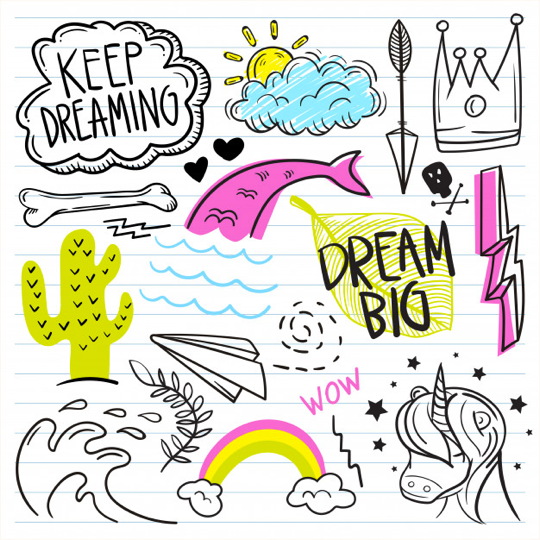 KEEP
DREAMING
DREAM
BIG
WOW